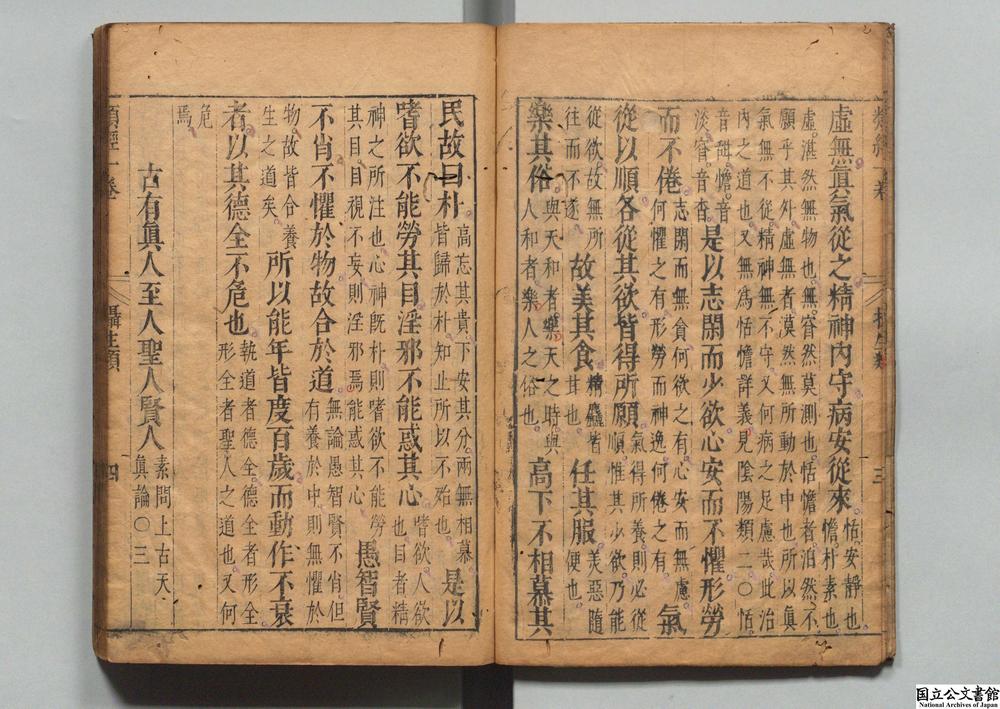 虛無眞氣從之精神內守病安從來恬安靜也憺朴素也
虛湛然無物也無窅然莫測也恬憺者泊然不
願乎其外虛無者漠然無所動於中也所以眞
氣無不從精神無不守又何病之足慮哉此治
內之道也又無為恬憺詳義見陰陽類二〇恬
音甜憺音淡窅音杳是以志閑而少欲心安而不懼形勞
而不倦志閑而無貪何欲之有心安而無慮何懼之有形勞而神逸何倦之有氣
從以順各從其欲皆得所願氣得所養則必從順惟其少欲乃能
從欲故無所往而不遂故美其食精麤皆甘也任其服美惡隨便也
樂其俗與天和者樂天之時與人和者樂人之俗也高下不相慕其
三
民故曰朴高忘其貴下安其分兩無相慕皆歸於朴知止所以不殆也是以
嗜欲不能勞其目淫邪不能惑其心嗜欲人欲也目者精
神之所注也心神既朴則嗜欲不能勞
其目目視不妄則淫邪焉能惑其心愚智賢
不肖不懼於物故合於道無論愚智賢不肖但有養於中則無懼於
物故皆合養生之道矣所以能年皆度百歲而動作不衰
者以其德全不危也執道者德全德全者形全形全者聖人之道也又何
危焉
古有眞人至人聖人賢人素問上古天眞論〇三
類經一卷
攝生類
四
国立公文書館
National Archives of Japan